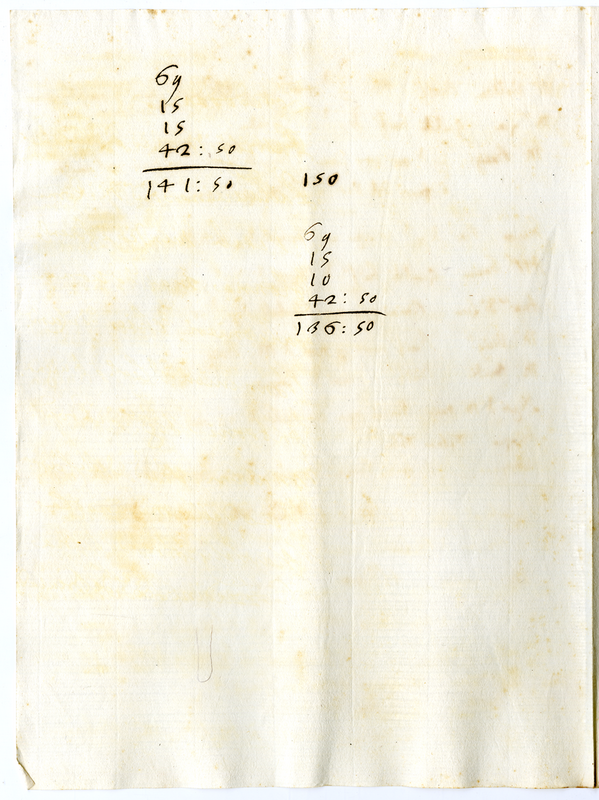 69
15
15
42: 50
141: 50
150
69
15
10
42: 50
136: 50